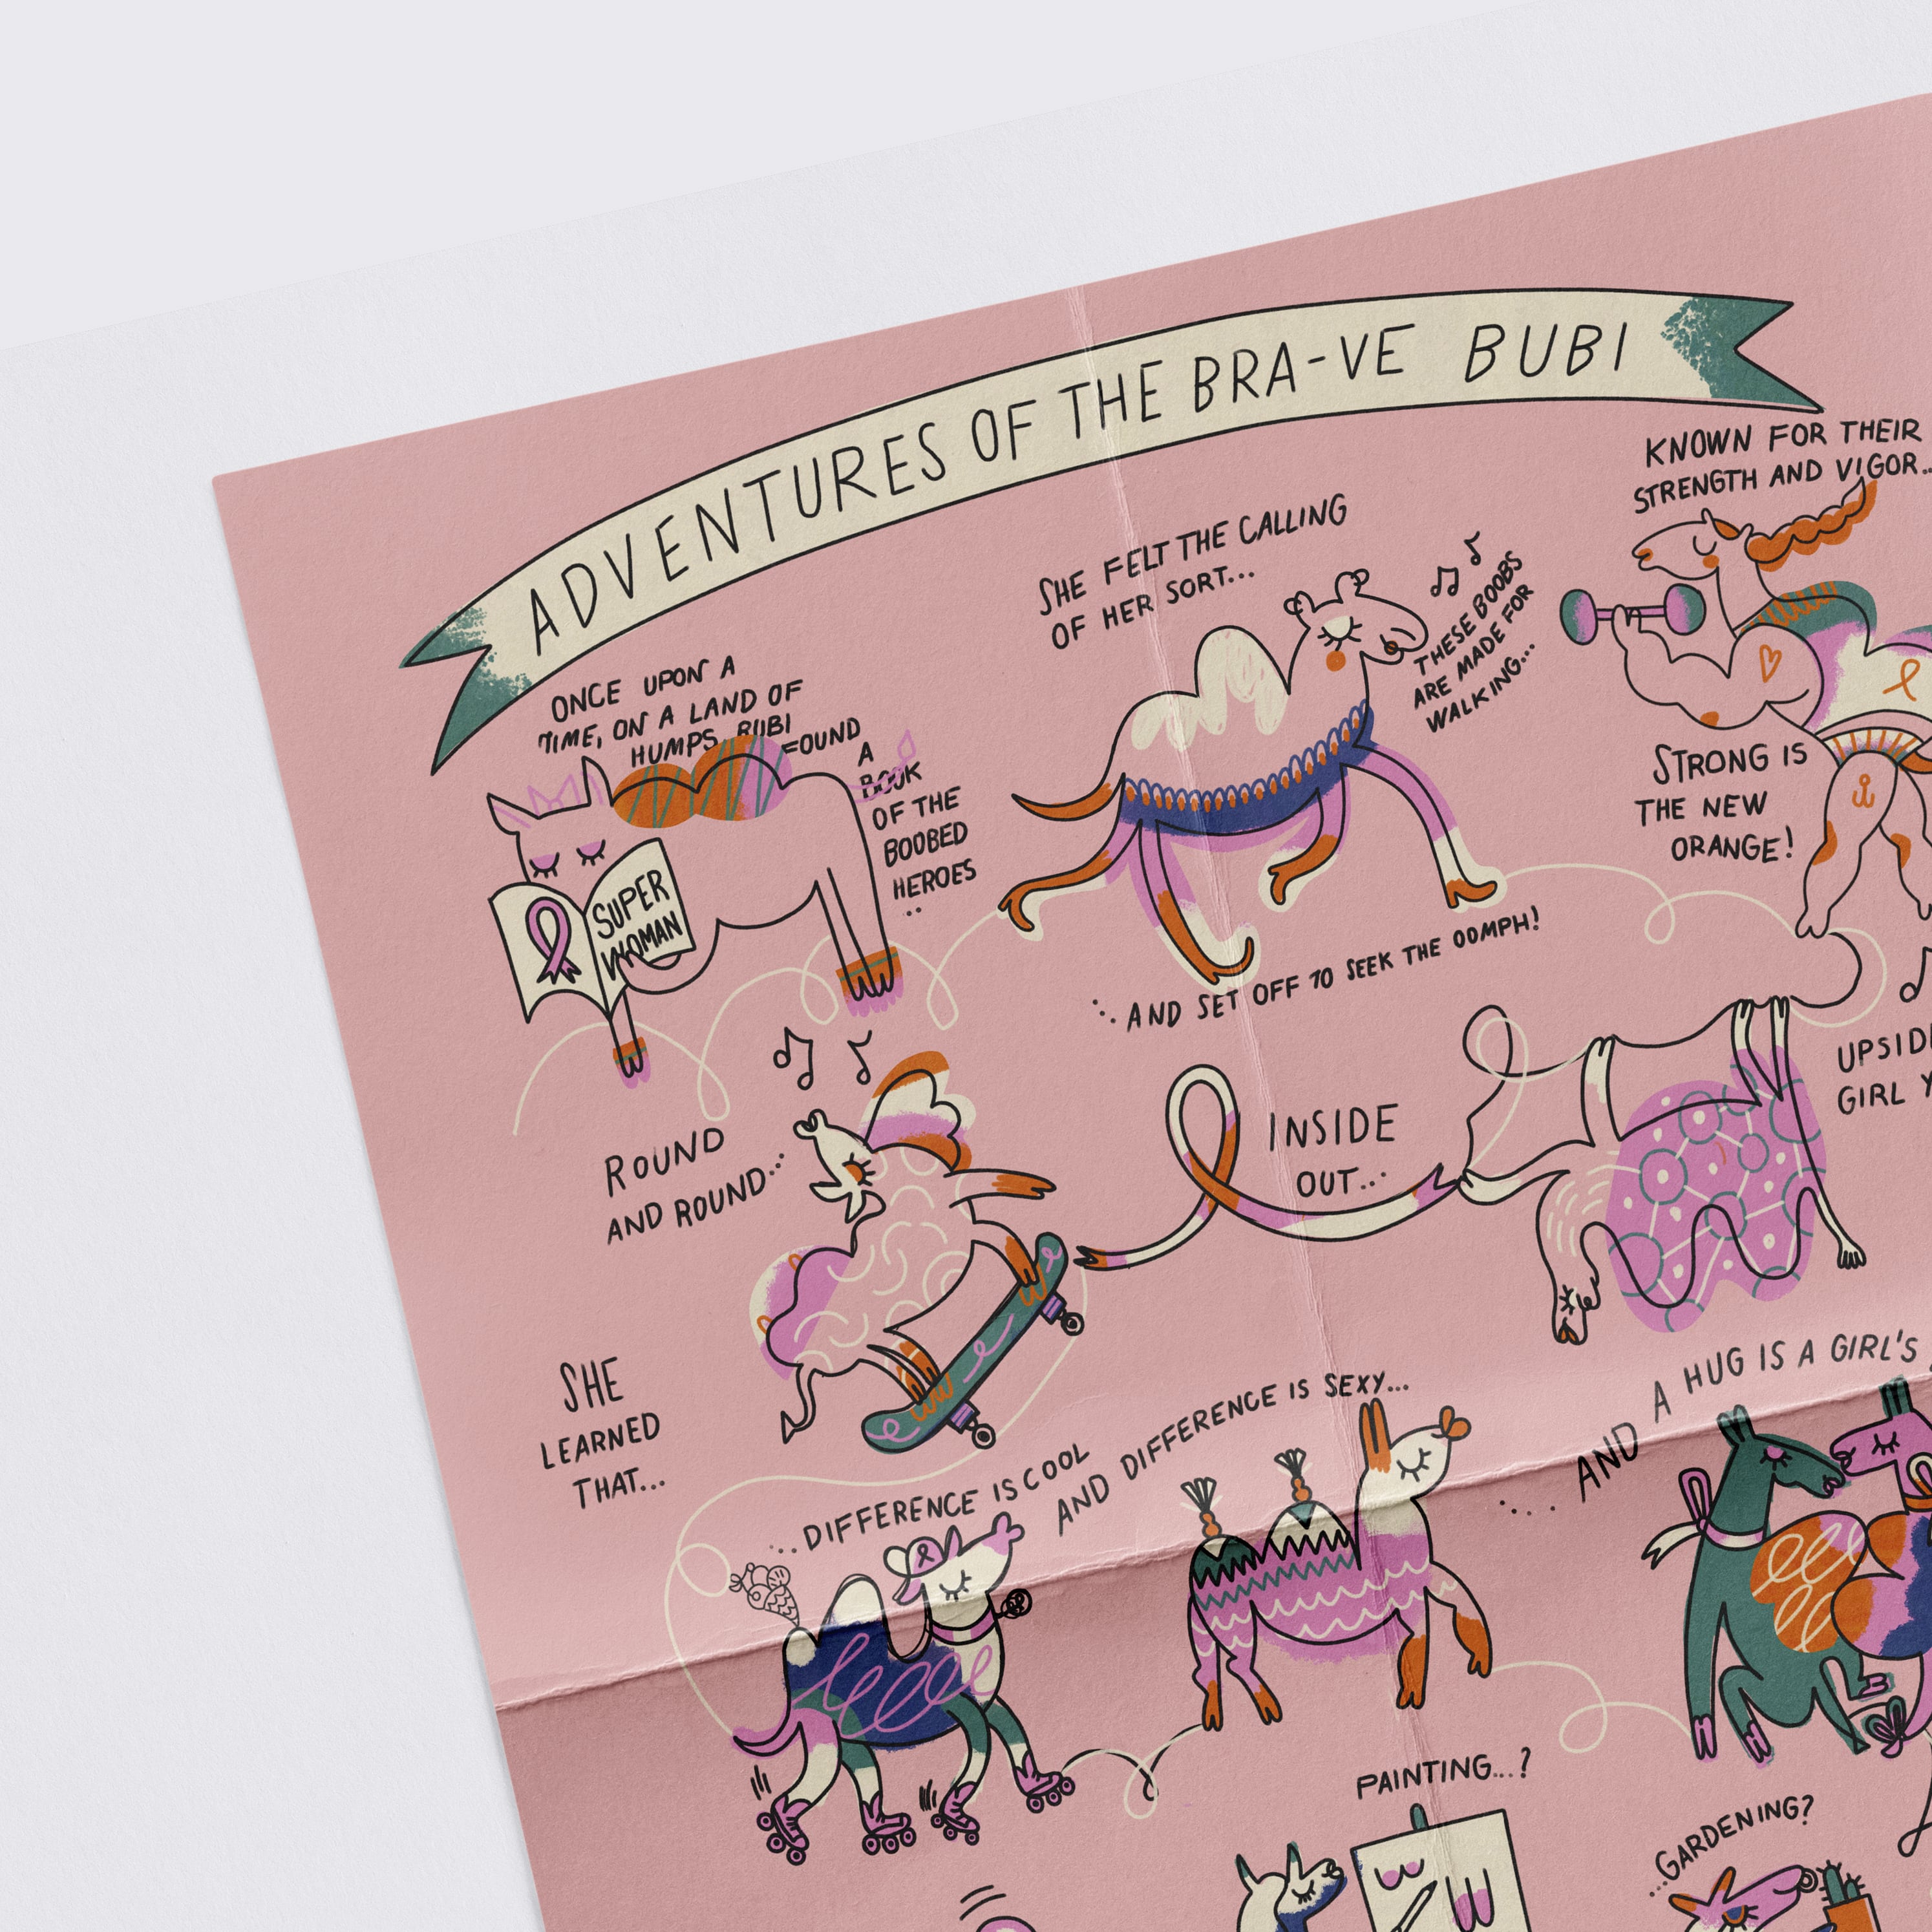 ADVENTURES OF THE BRA-VE BUBI
ONCE UPON A
TIME, ON A LAND OF
HUMPS, BUBI
FOUND
A
BOOK
OF THE
BOOBED
HEROES
...
SUPER
WOMAN
SHE FELT THE CALLING
OF HER SORT...
THESE BOOBS
ARE MADE FOR
WALKING...
...AND SET OFF TO SEEK THE OOMPH!
KNOWN FOR THEIR
STRENGTH AND VIGOR...
STRONG IS
THE NEW
ORANGE!
ROUND
AND ROUND...
INSIDE
OUT...
GIRL
SHE
LEARNED
THAT...
...DIFFERENCE IS COOL
AND DIFFERENCE IS SEXY...
...AND A HUG IS A GIRL'S
PAINTING...?
...GARDENING?